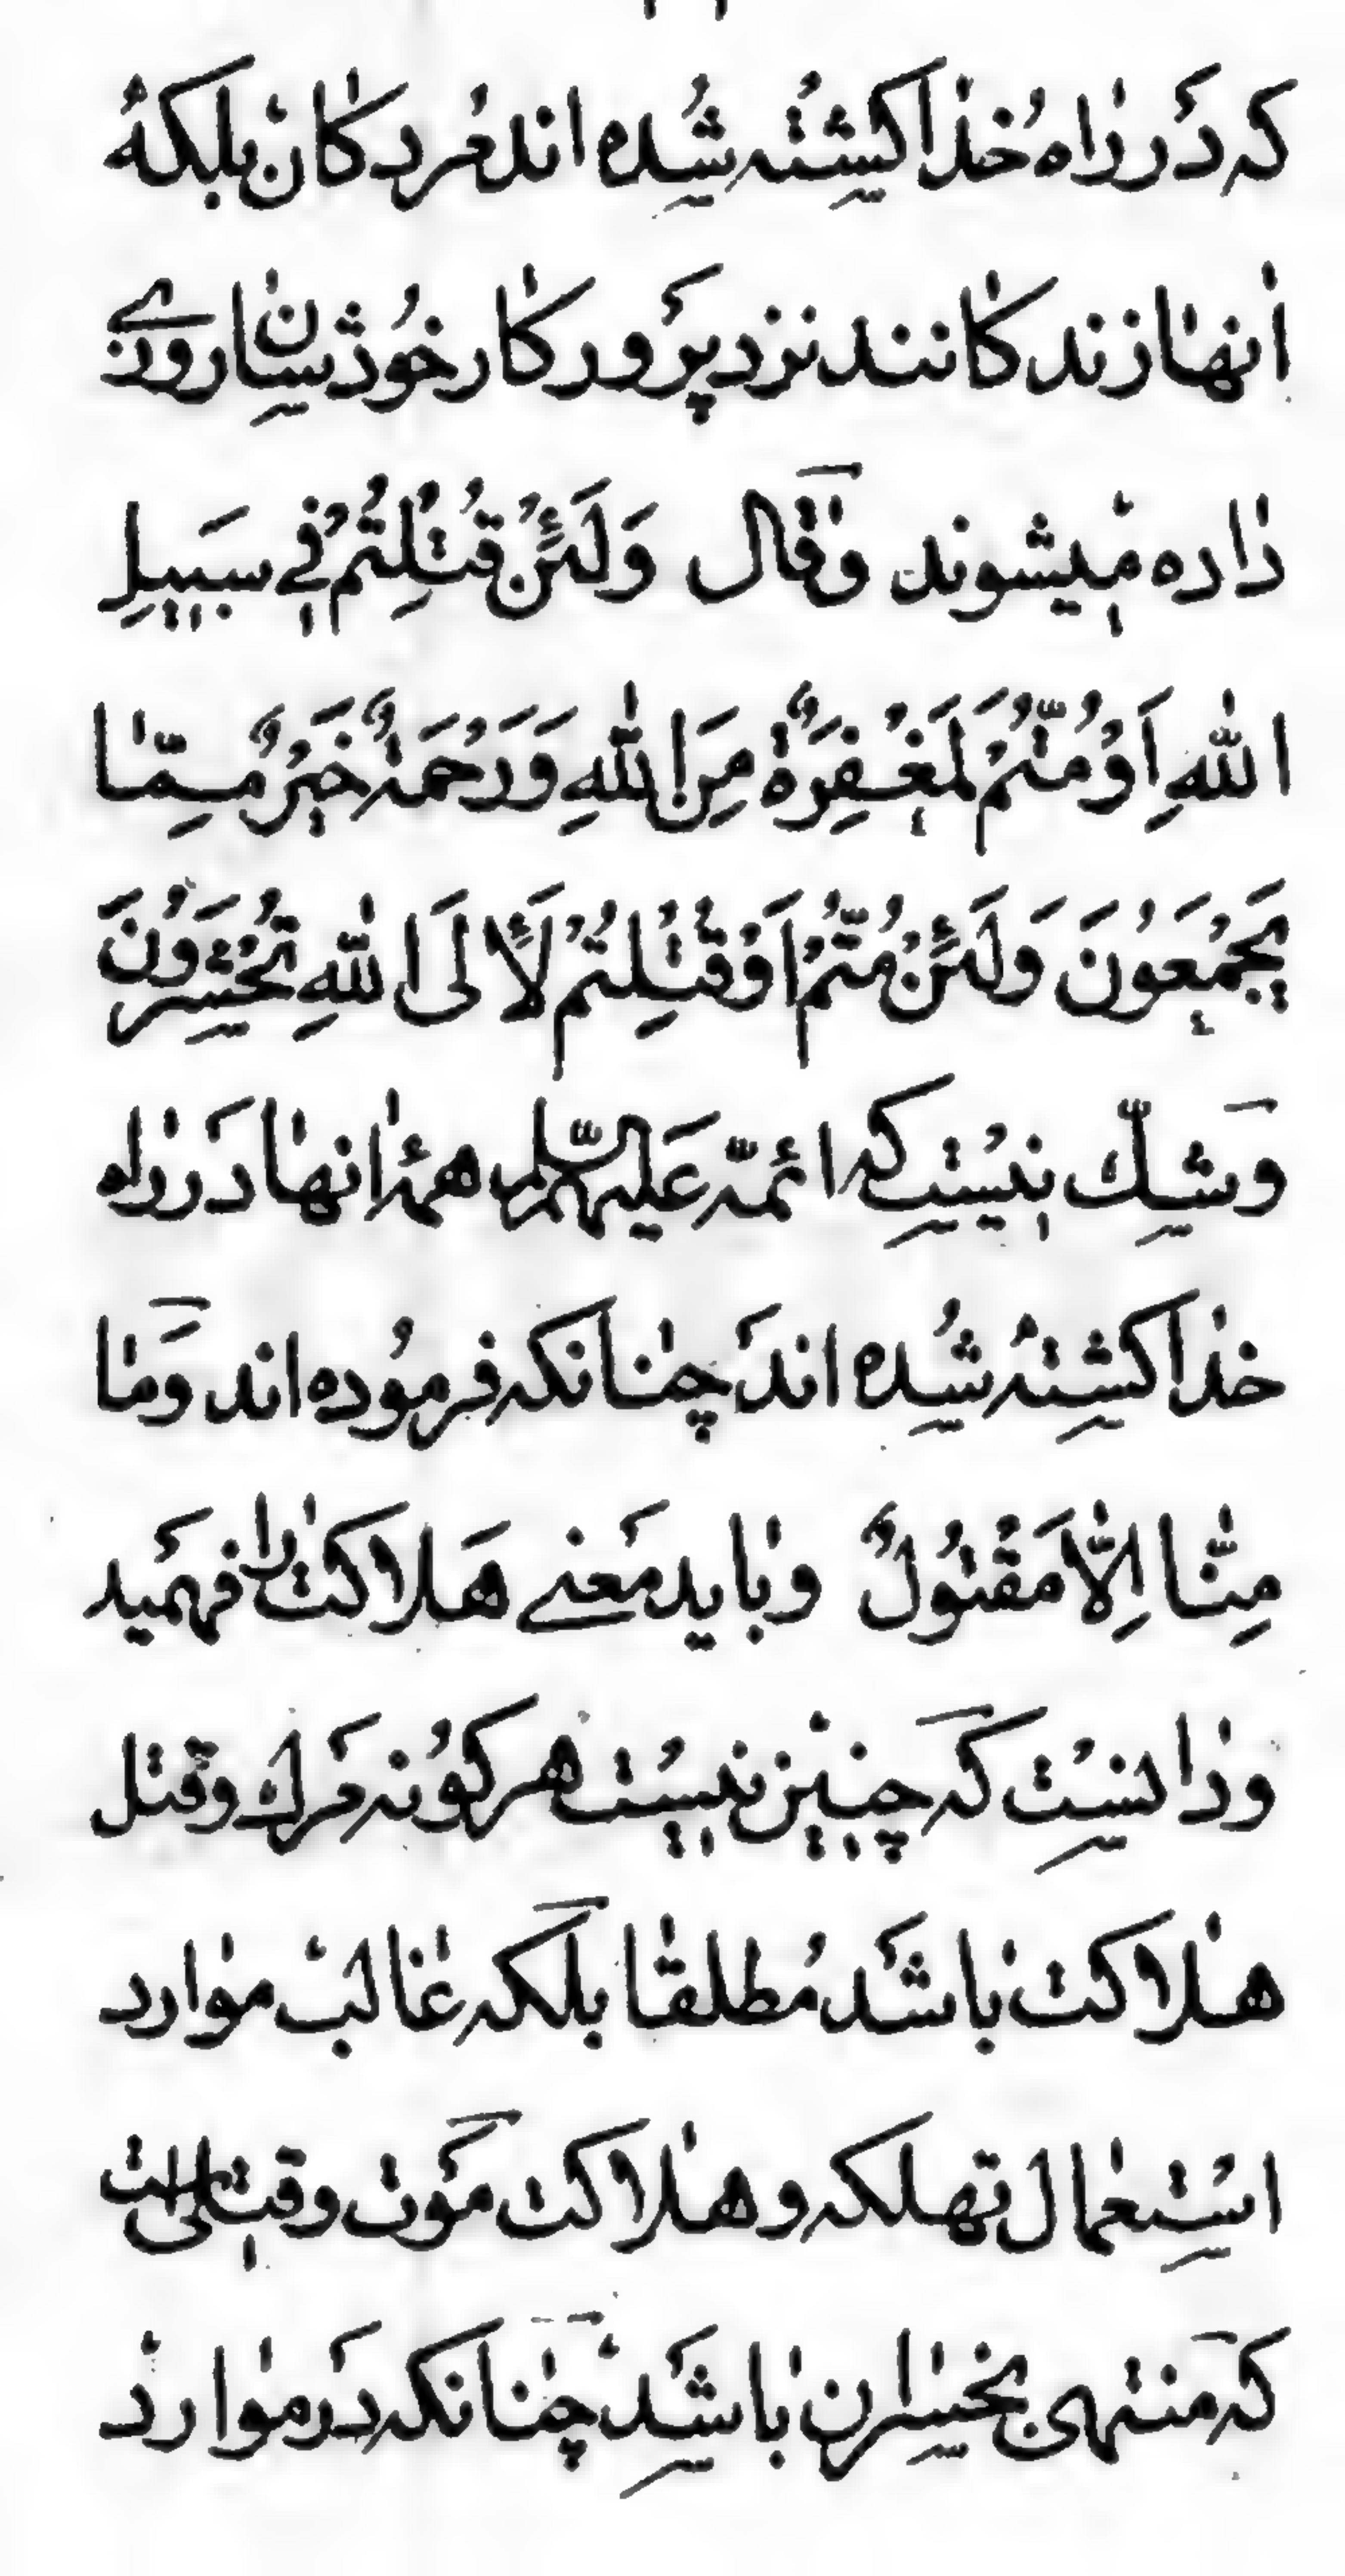 که در راه خدا کشته شده اند مردکان بلکه
انها زندکانند نزد پرورکار خودشان روزی
داده میشوند وقال وَلَئِنْ قُتِلْتُمْ فِی سَبیلِ
اللهِ اَوْ مُتُّمْ لَمَغْفِرَةٌ مِنَ اللهِ وَرَحْمَةٌ خَیْرٌ مِمّا
یَجْمَعُونَ وَلَئِنْ مُتُّمْ اَوْ قُتِلْتُمْ لَاِلَی اللهِ تُحْشَرُونَ
وشک نیست که ائمّه عَلیهم السّلام همه انها در راه
خدا کشته شده اند چنانکه فرموده اند وَما
مِنّا اِلاّ مَقْتُولٌ وباید معنی هلاکت را فهمید
ودانست که چنین نیست هر کونه مرک وقتل
هلاکت باشد مطلقا بلکه غالب موارد
استعمال تهلکه و هلاکت موت وقتلی است
که منتهی بخسران باشد چنانکه در موارد